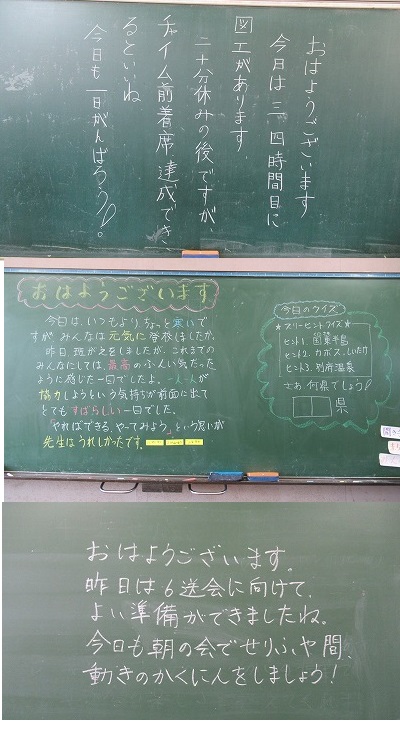 おはようございます
今日は三、四時間目に
図工があります。
二十分休みの後ですが、
チャイム前着席達成でき
るといいね
今日も一日がんばろう!!。
おはようございます
今日は、いつもよりちょっと寒いで
すが、みんなは元気に登校しましたか。
昨日、班がえをしましたが、これまでの
みんなにしては、最高のふん囲気だった
ように感じた一日でしたよ。一人一人が
協力しようという気持ちが前面に出て
とてもすばらしい一日でした。
「やればできる、やってみよう」という思いが
先生はうれしかったです。
今日のクイズ
★スリーヒントクイズ★
ヒント1. 国東半島
ヒント2. カボス、しいたけ
ヒント3. 別府温泉
さあ何県でしょう!
県
おはようございます。
昨日は6送会に向けて、
よい準備ができましたね。
今日も朝の会でせりふや間、
動きのかくにんをしましょう!